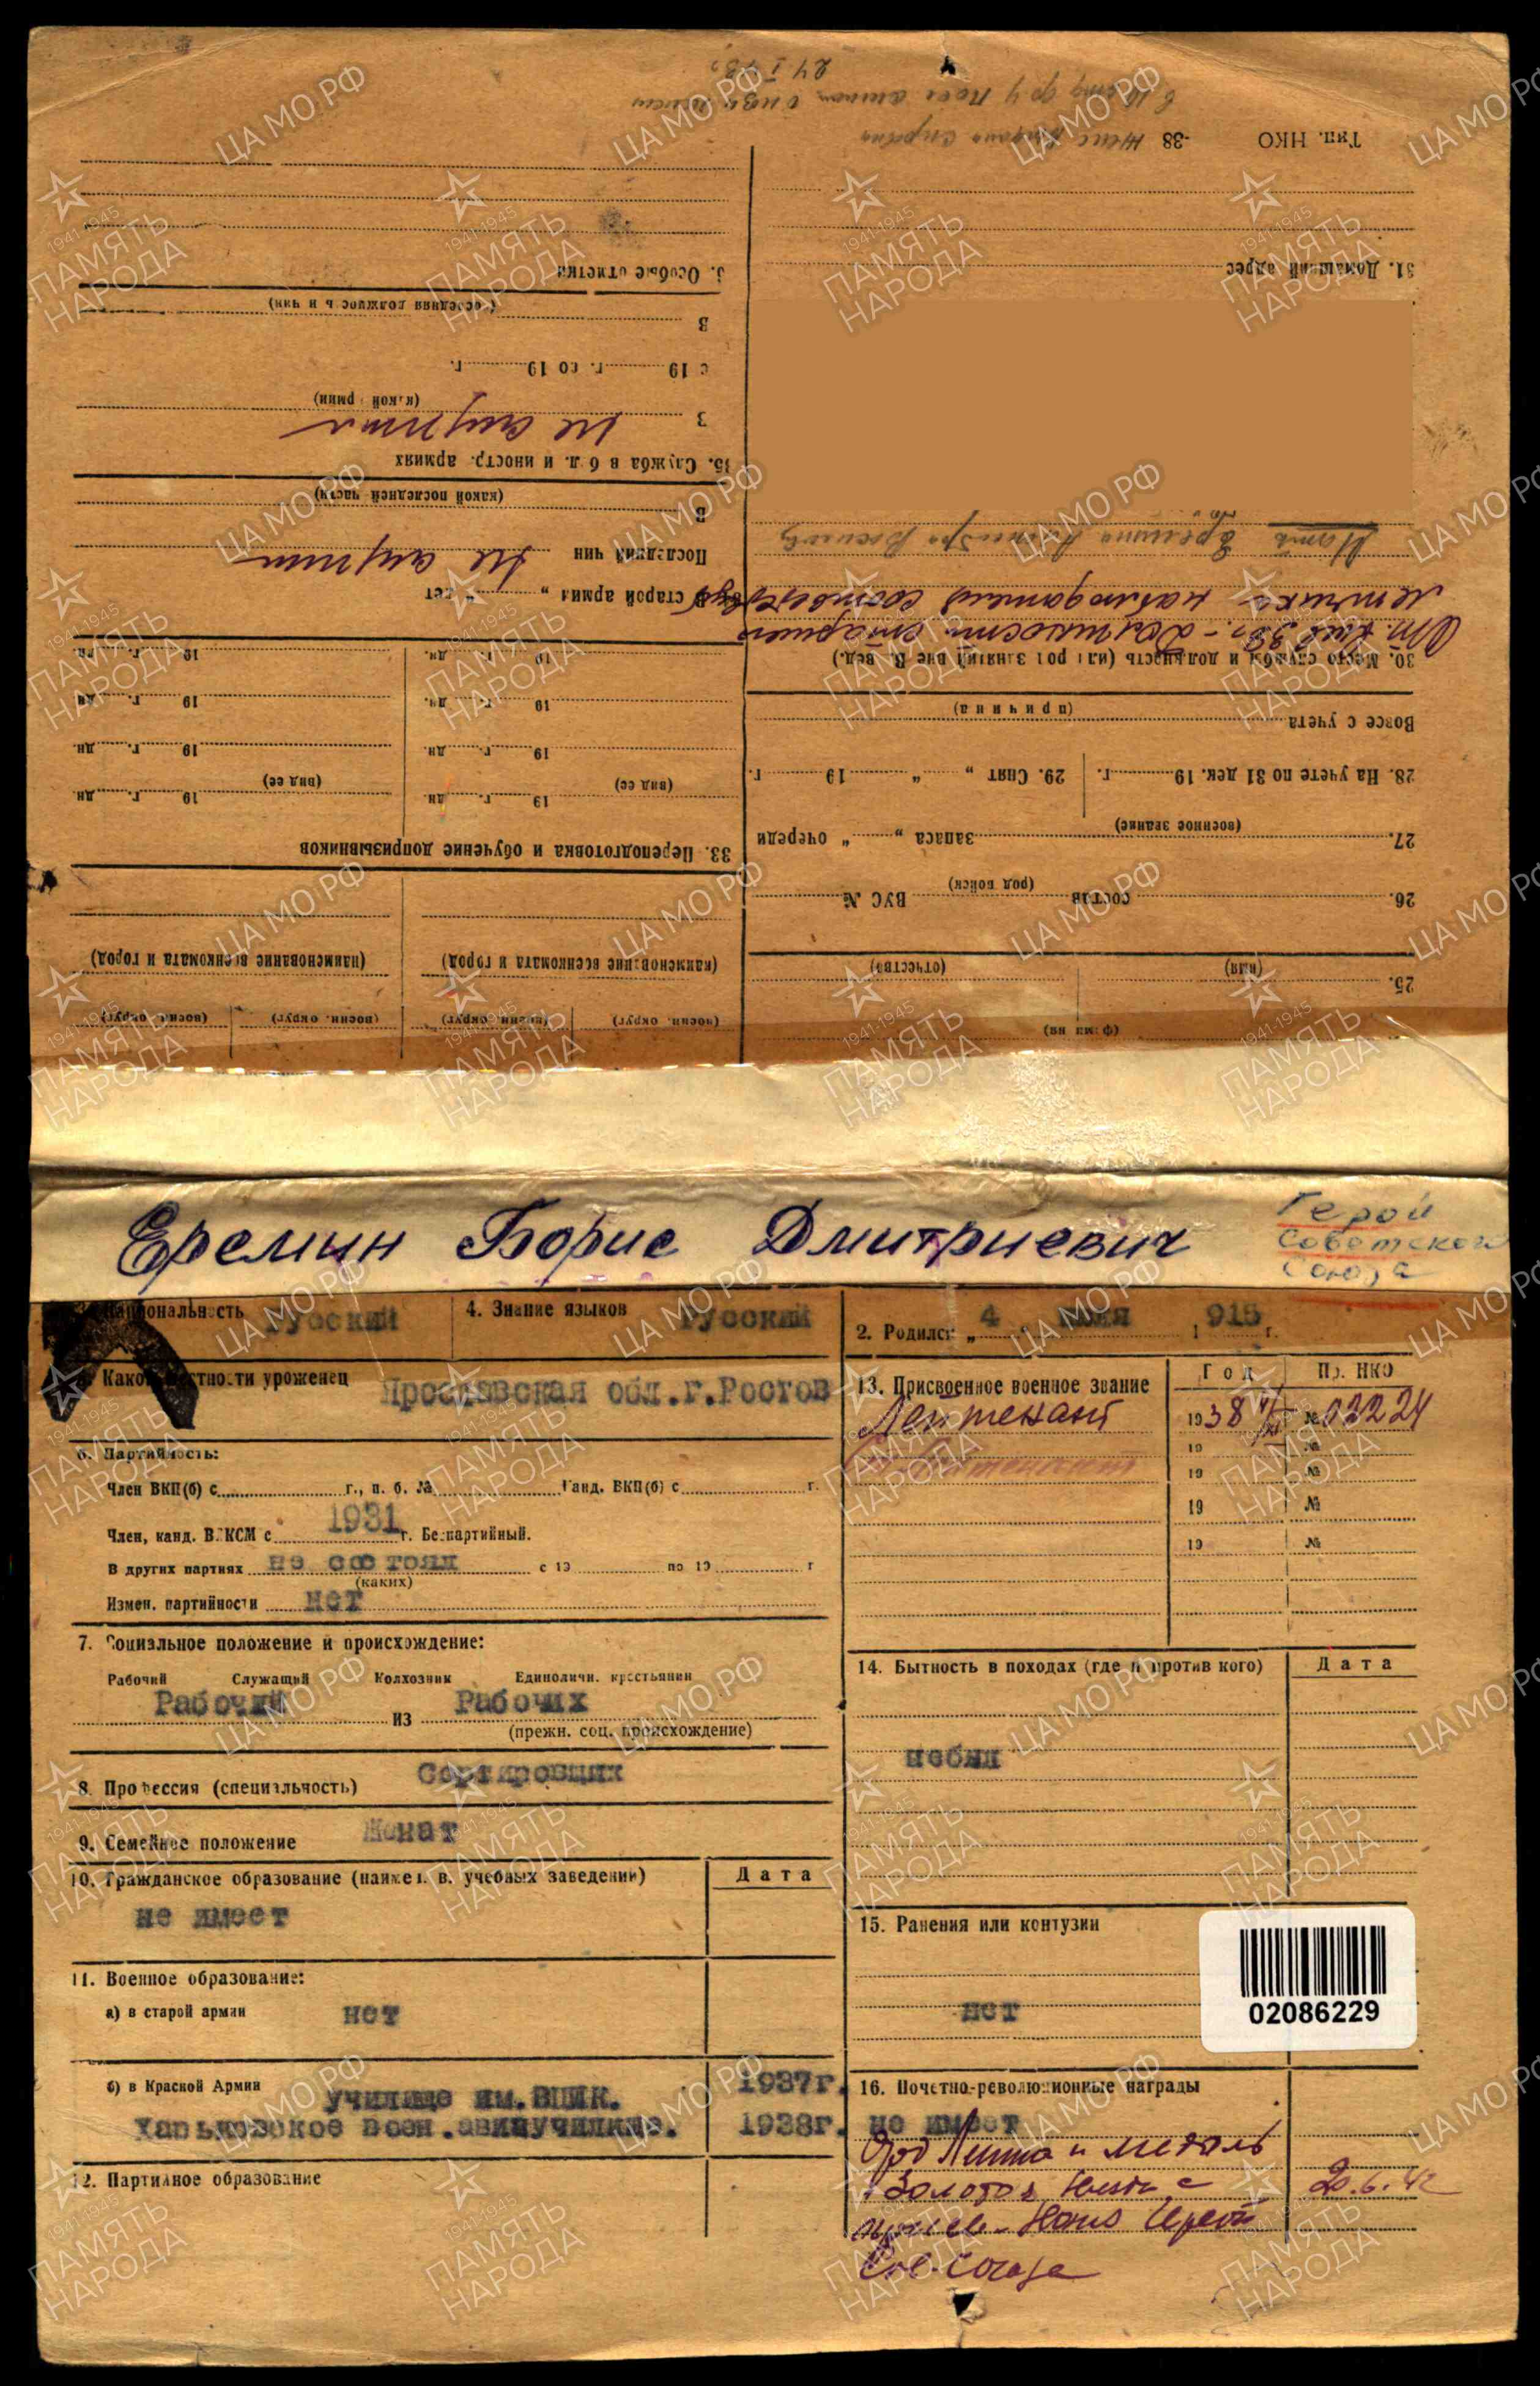 Тип. НКО -38
24 I 43г
31. Домашний адрес
Мать Еремина
летчика наблюдателя
30. Место службы и должность (или род занятий вне В. вед.)
Вовсе с учета
(причина)
28. На учете по 31 дек. 19 г. 29. Снят „ “ 19 г.
27. запаса „ “ очереди
(военное звание)
26. состав ВУС №
(род войск)
25.
(имя) (отчество)
Особые отметки
(последняя должность и чин)
В
с 19 г. по 19 г.
(какой армии)
не служил
35. Служба в б л. и иностр. армиях
(какой последней части)
В
Последний чин не служил
старой армии „ “ лет
19 г. дн. 19 г. дн.
19 г. дн. 19 г. дн.
19 г. дн. 19 г. дн.
(вид сб) (вид сб)
19 г. дн. 19 г. дн.
33. Переподготовка и обучение допризывников
(наименование военкомата и город) (наименование военкомата и город)
(воен. округ) (воен. округ) (воен. округ) (воен. округ)
Еремин Борис Дмитриевич
Герой
Советского
Союза
Национальность Русский 4. Знание языков Русский
2. Родился „ 4 “ 1 915 г.
Какой местности уроженец Ярославская обл.г.Ростов
6. Партийность:
Член ВКП(б) с г., п. б. № Канд. ВКП(б) с г.
Член, канд. ВЛКСМ с 1931 г. Беспартийный.
В других партиях не состоял с 19 по 19 г
(каких)
Измен. партийности нет
7. Социальное положение и происхождение:
Рабочий Служащий Колхозник Единоличн. крестьянин
Рабочий из Рабочих
(прежн. соц. происхождение)
8. Профессия (специальность) Сортировщик
9. Семейное положение Женат
10. Гражданское образование (наимен. в. учебных заведений) Дата
не имеет
11. Военное образование:
а) в старой армии нет
б) в Красной Армии
училище им.ВЦИК. 1937г.
Харьковское воен.авиаучилище. 1938г.
12. Партийное образование
13. Присвоенное военное звание Год Пр. НКО
Лейтенант 1938 № 02224
19 №
19 №
19 №
19 №
14. Бытность в походах (где и против кого) Дата
небыл
15. Ранения или контузии
нет
02086229
16. Почетно-революционные награды
не имеет
Орд Ленина и медаль
Золотая 20.6.42
Сов.Союза
ЦА МО РФ
1941-1945
ПАМЯТЬ
НАРОДА